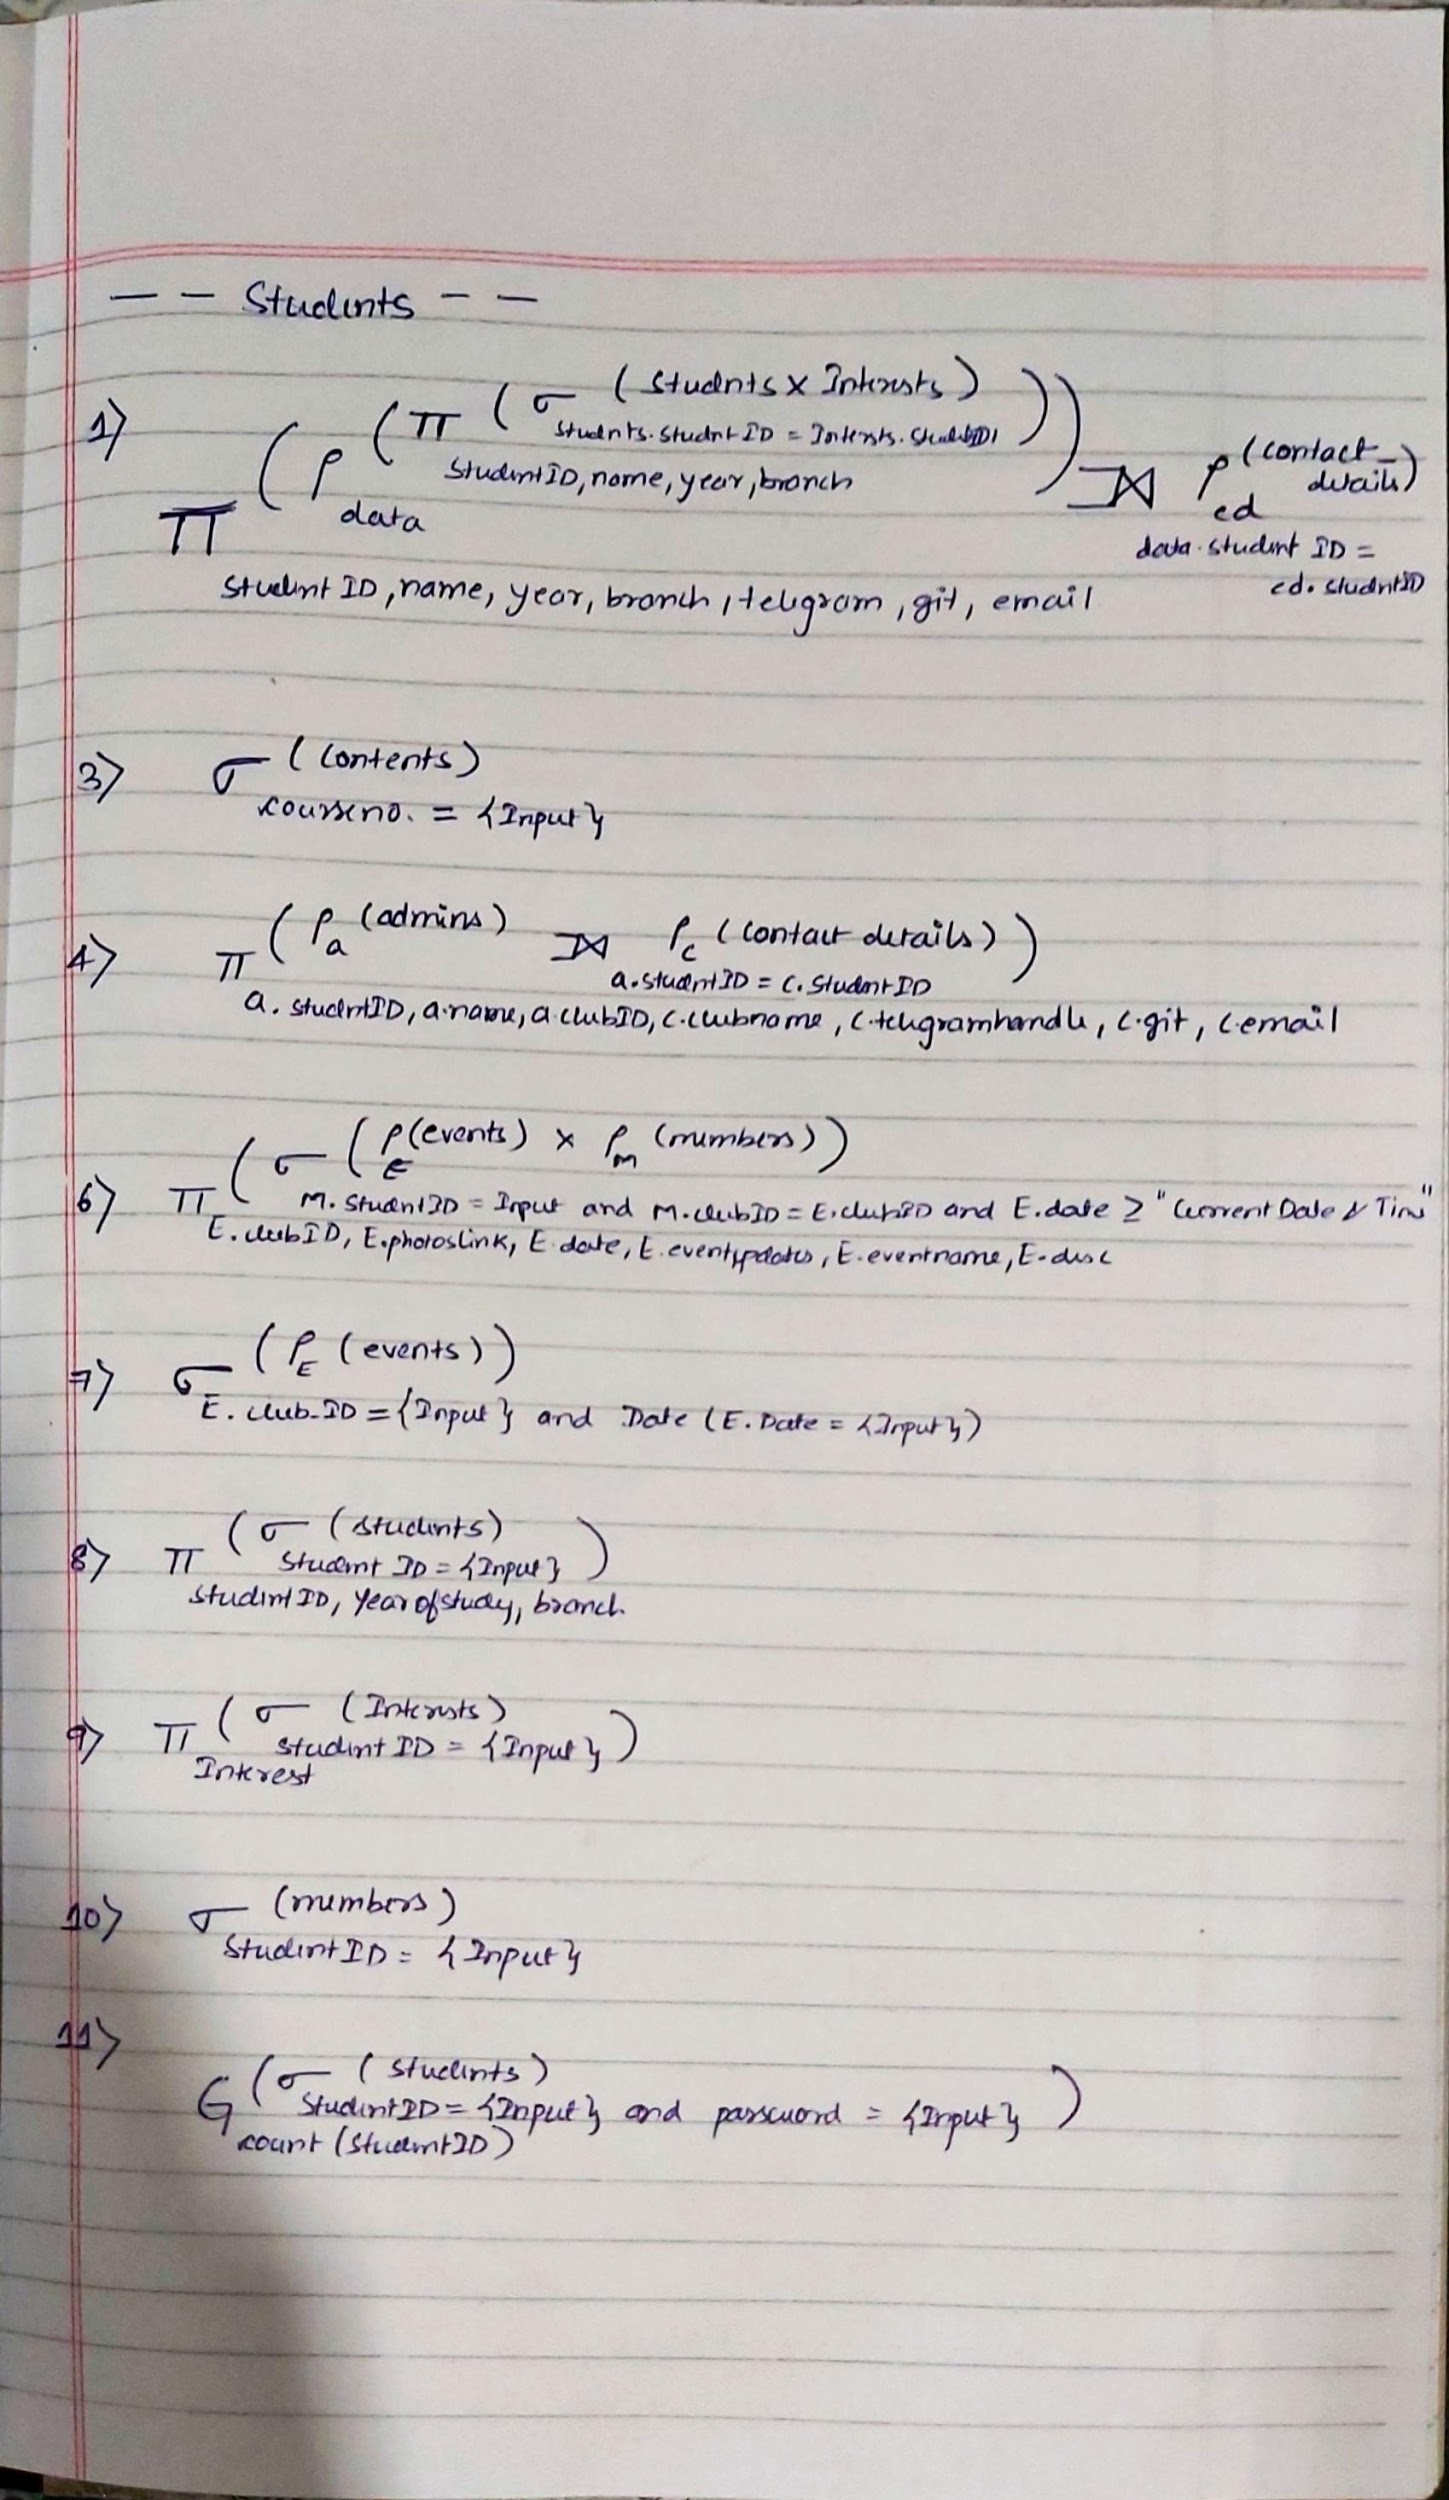 -- Students --
1) π studentID, name, year, branch, telegram, git, email (ρ data (π studentID, name, year, branch (σ students.studentID = Interests.studentID (students × Interests)))) ⟕ data.studentID = cd.studentID ρ cd (contact_details)
3) σ courseno. = {Input} (contents)
4) π a.studentID, a.name, a.clubID, c.clubname, c.telegramhandle, c.git, c.email (ρ a (admins) ⟕ a.studentID = c.studentID ρ c (contact details))
6) π E.clubID, E.photoslink, E.date, E.eventupdates, E.eventname, E.disc (σ M.studentID = Input and M.clubID = E.clubID and E.date ≥ "Current Date & Time" (ρ E (events) × ρ M (members)))
7) σ E.club_ID = {Input} and Date (E.Date = {Input}) (ρ E (events))
8) π studentID, Year of study, branch (σ student ID = {Input} (students))
9) π Interest (σ student ID = {Input} (Interests))
10) σ studentID = {Input} (members)
11) G count (studentID) (σ studentID = {Input} and password = {Input} (students))